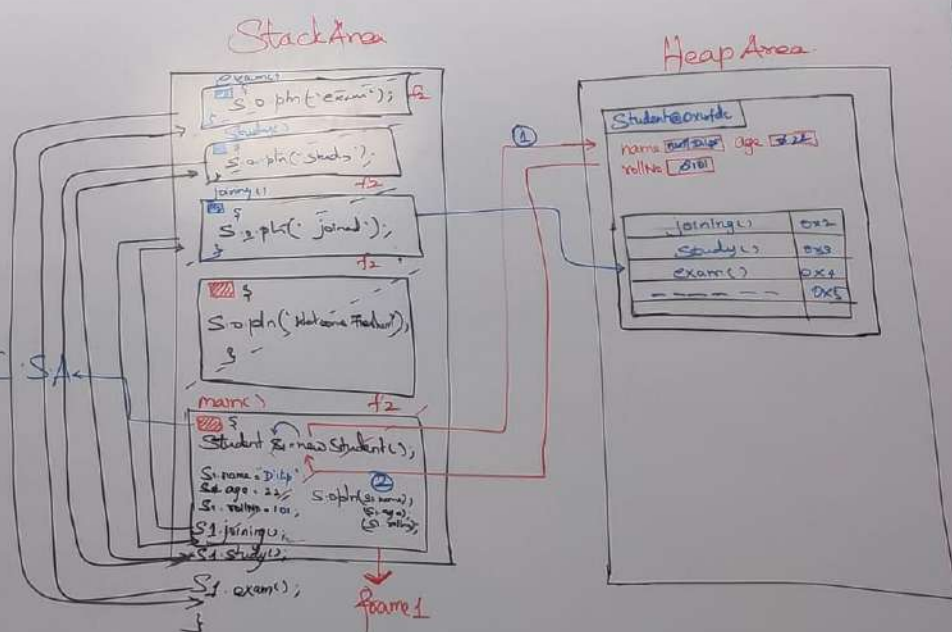 Stack Area
exam()
{
S.o.pln("exam");
}
f2
study()
{
S.o.pln("Study");
}
f2
joining()
{
S.o.pln("joined");
}
f2
{
S.o.pln("Welcome
}
f2
main()
{
Student S1=new Student();
S1.name="Dilip"
S1.age=22;
S1.rollNo=101;
S.o.pln(S1.name);
(S1.age);
(S1.rollNo);
S1.joining();
S1.study();
S1.exam();
}
frame1
S.A
1
2
Heap Area
name
age
rollNo 101
joining() 0x2
study() 0x3
exam() 0x4
- - - - - - 0x5